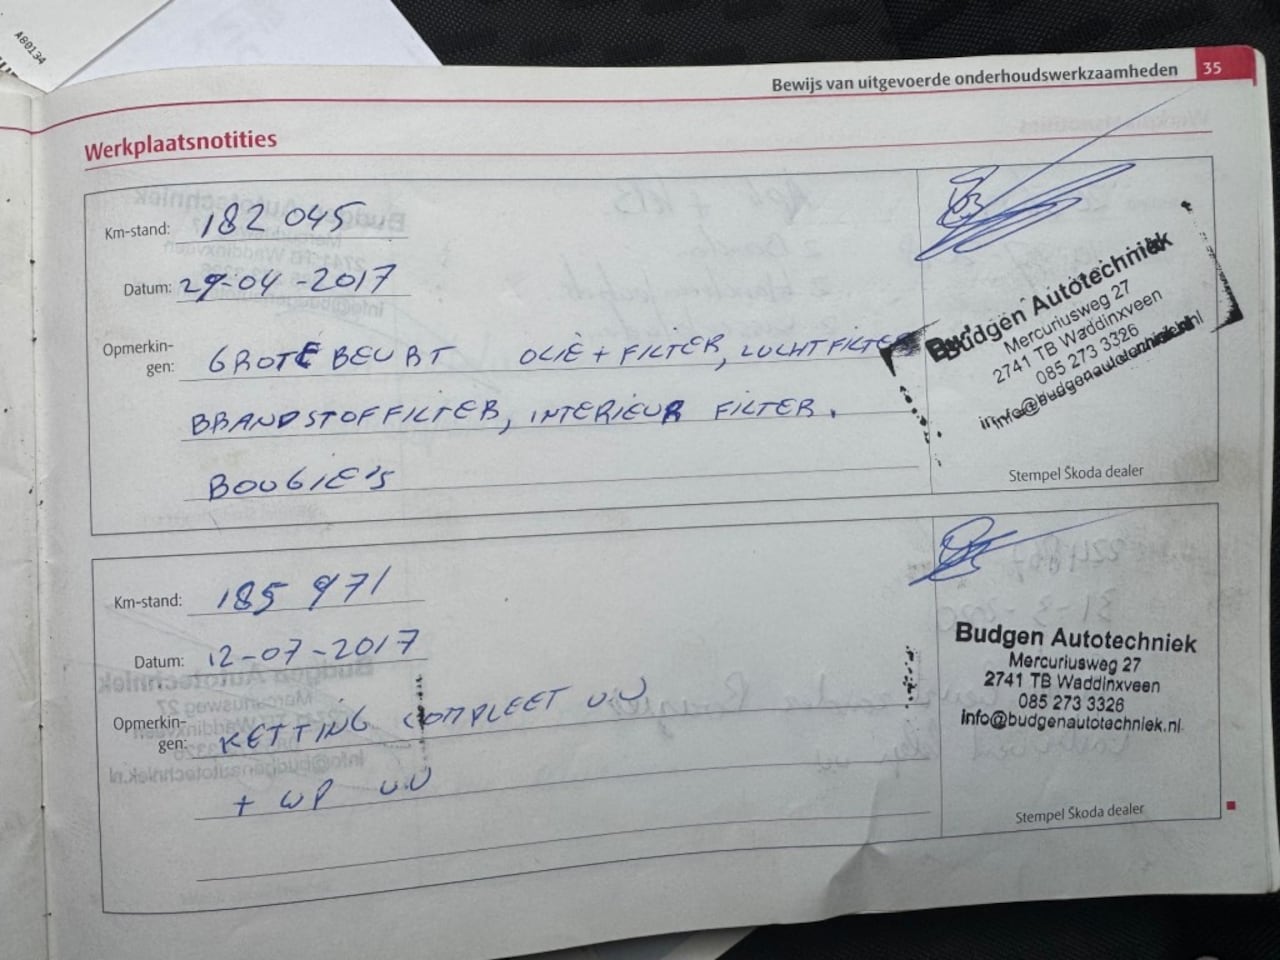 A80134
Bewijs van uitgevoerde onderhoudswerkzaamheden 35
Werkplaatsnotities
Km-stand: 182 045
Datum: 29-04-2017
Opmerkin-
gen: GROTE BEURT OLIE + FILTER, LUCHTFILTER
BRANDSTOFFILTER, INTERIEUR FILTER.
BOUGIE'S
Budgen Autotechniek
Mercuriusweg 27
2741 TB Waddinxveen
085 273 3326
info@budgenautotechniek.nl
Stempel Škoda dealer
Km-stand: 185 971
Datum: 12-07-2017
Opmerkin-
gen: KETTING COMPLEET VV
+ WP V.V
Budgen Autotechniek
Mercuriusweg 27
2741 TB Waddinxveen
085 273 3326
info@budgenautotechniek.nl
Stempel Škoda dealer